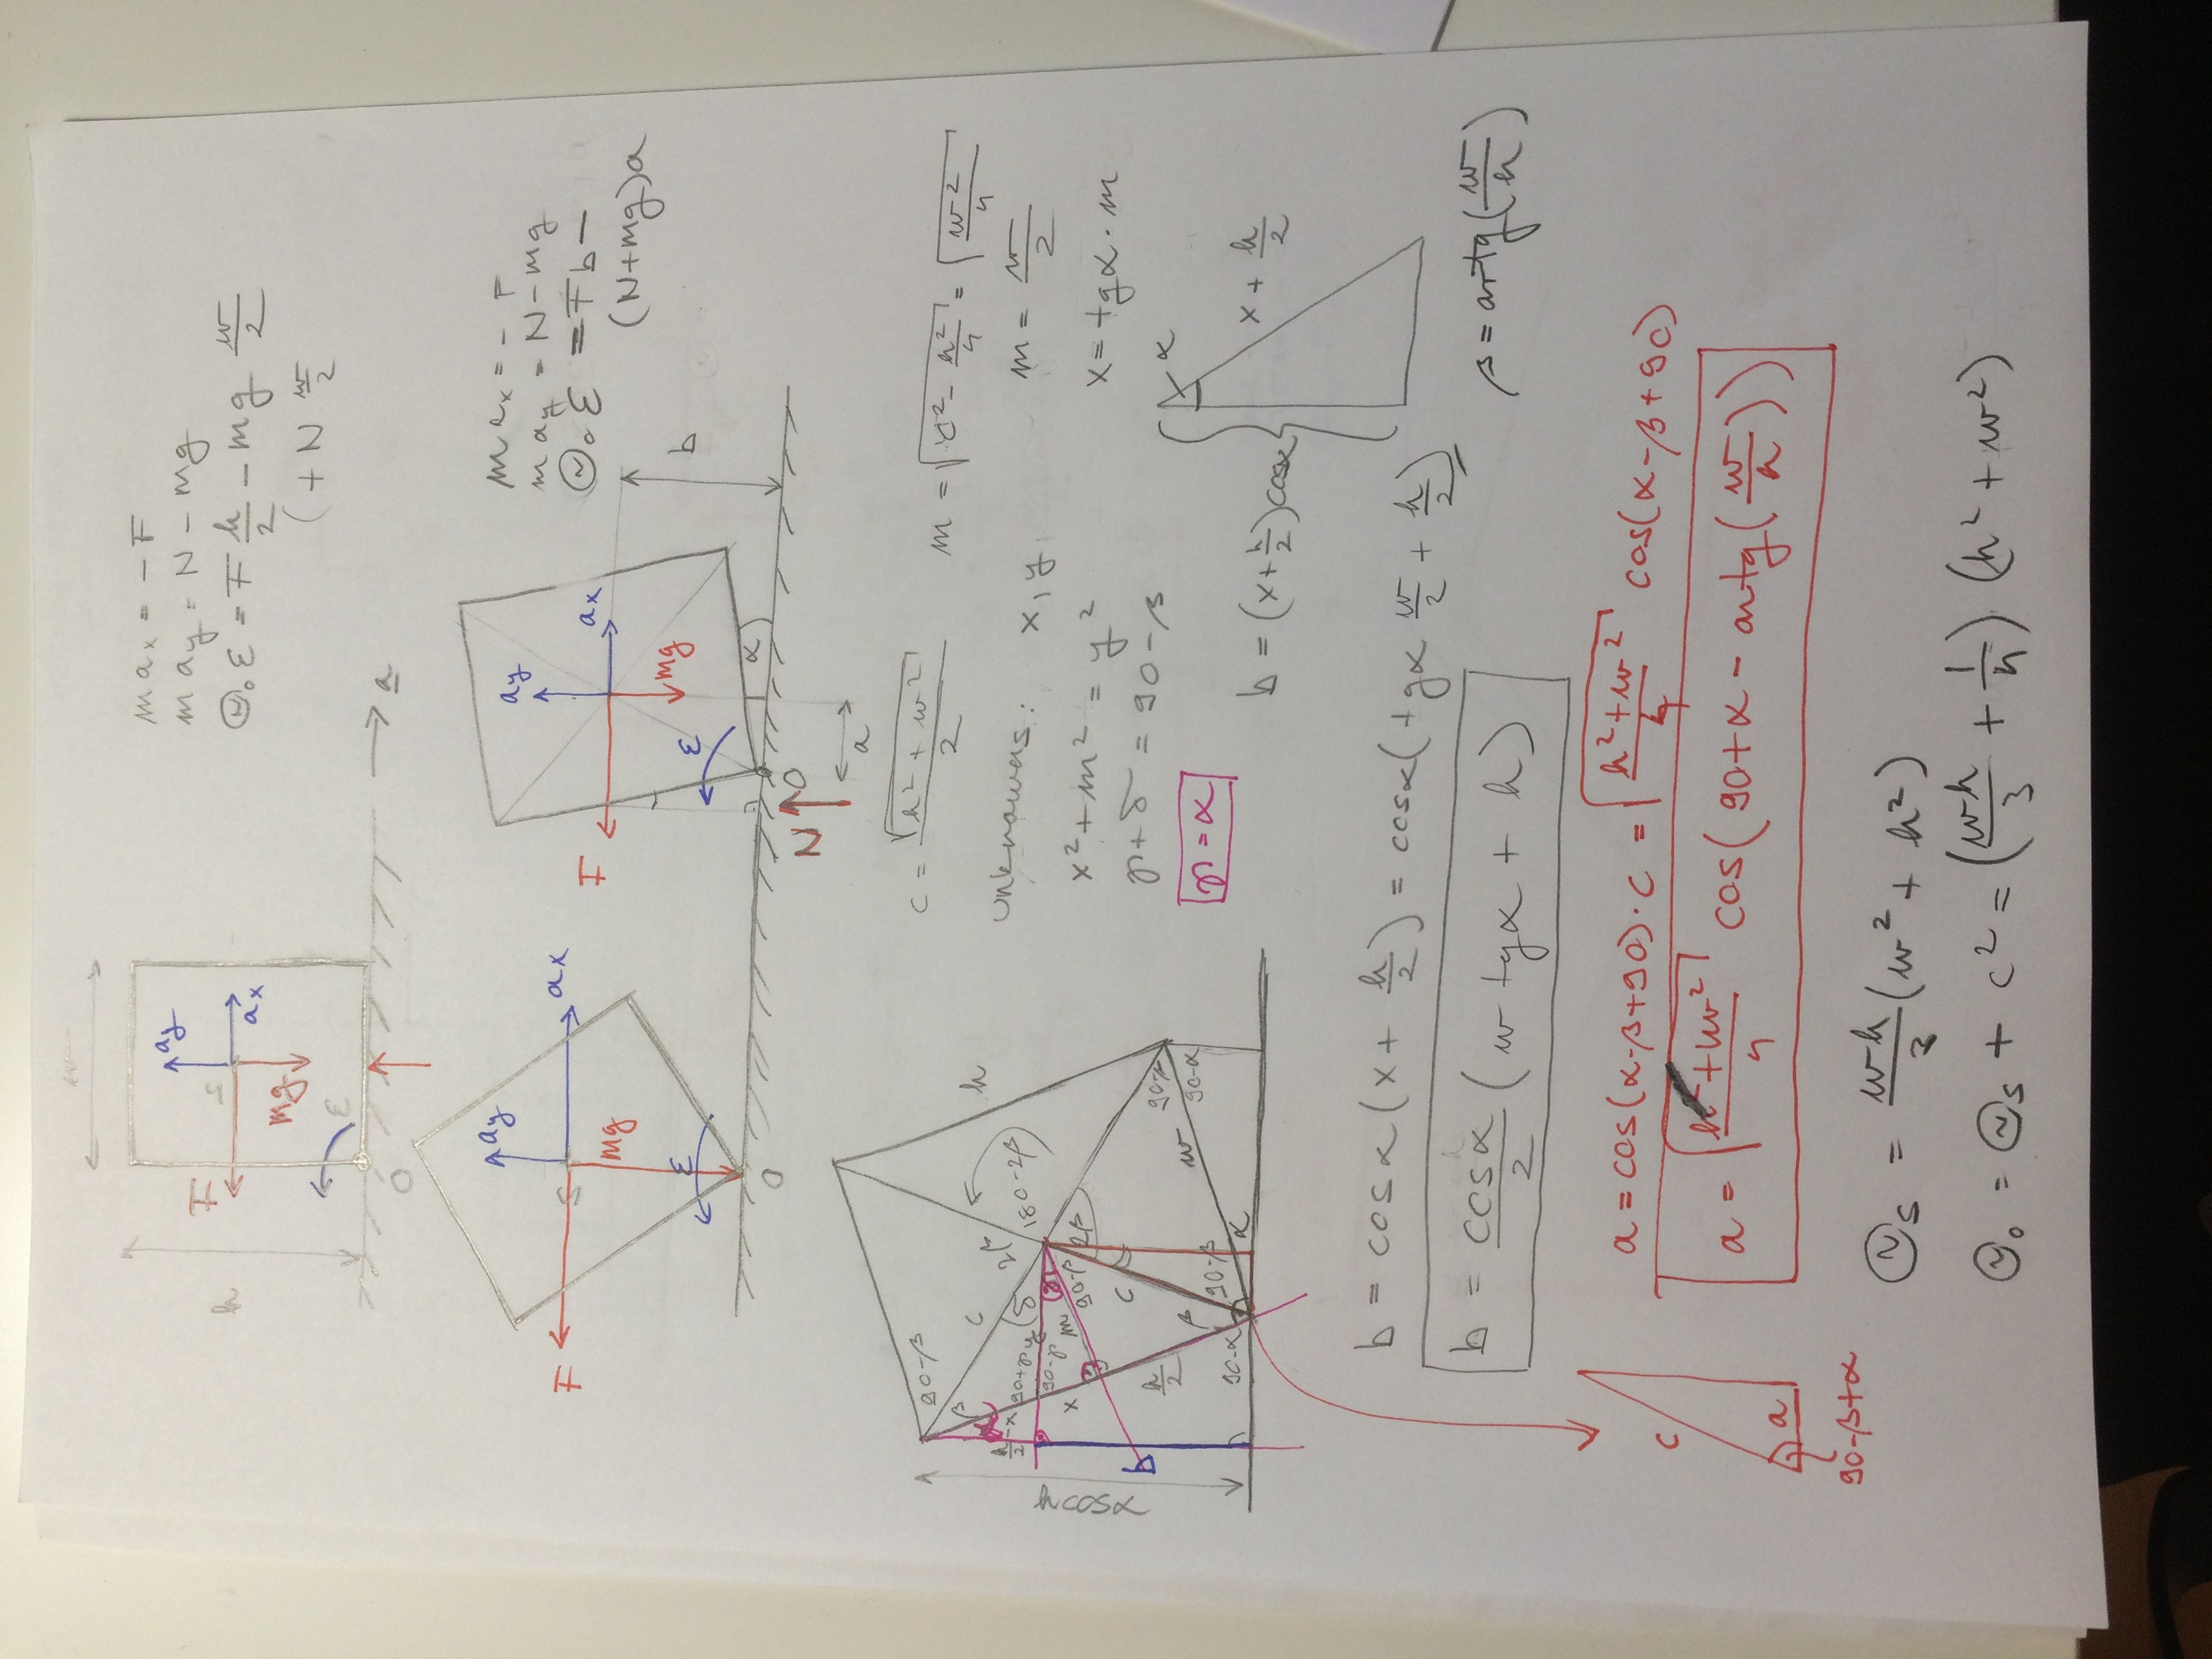 w
h
F
S
ay
ax
mg
ε
O
a
max = -F
may = N - mg
Θ₀ε = F h/2 - mg w/2
(+ N w/2
F
S
ay
ax
mg
ε
O
F
ay
ax
mg
ε
α
b
N
O
a
max = - F
may = N - mg
Θ₀ε = Fb -
(N+mg)a
h cos α
90-β
β
α
c
2β
h
h/2 - x
90+γ
y
δ
180-2β
90-γ
γ
x
m
90-β
2β
b
c
h/2
90-β
w
90-α
β
90-α
90-β
α
c = √(h² + w²)/2
m = √(c² - h²/4) = √(w²/4)
unknowns: x, y
m = w/2
x² + m² = y²
x = tgα · m
γ + δ = 90 - β
γ = α
α
b = (x + h/2) cosα
x + h/2
b = cosα (x + h/2) = cosα (tgα w/2 + h/2)
b = cosα/2 (w tgα + h)
β = artg(w/h)
a = cos(α-β+90) · c = √((h²+w²)/4) cos(α-β+90)
a = √((h²+w²)/4) cos(90+α - artg(w/h))
c
a
90-β+α
Θs = wh/3 (w² + h²)
Θ₀ = Θs + c² = (wh/3 + 1/4) (h² + w²)